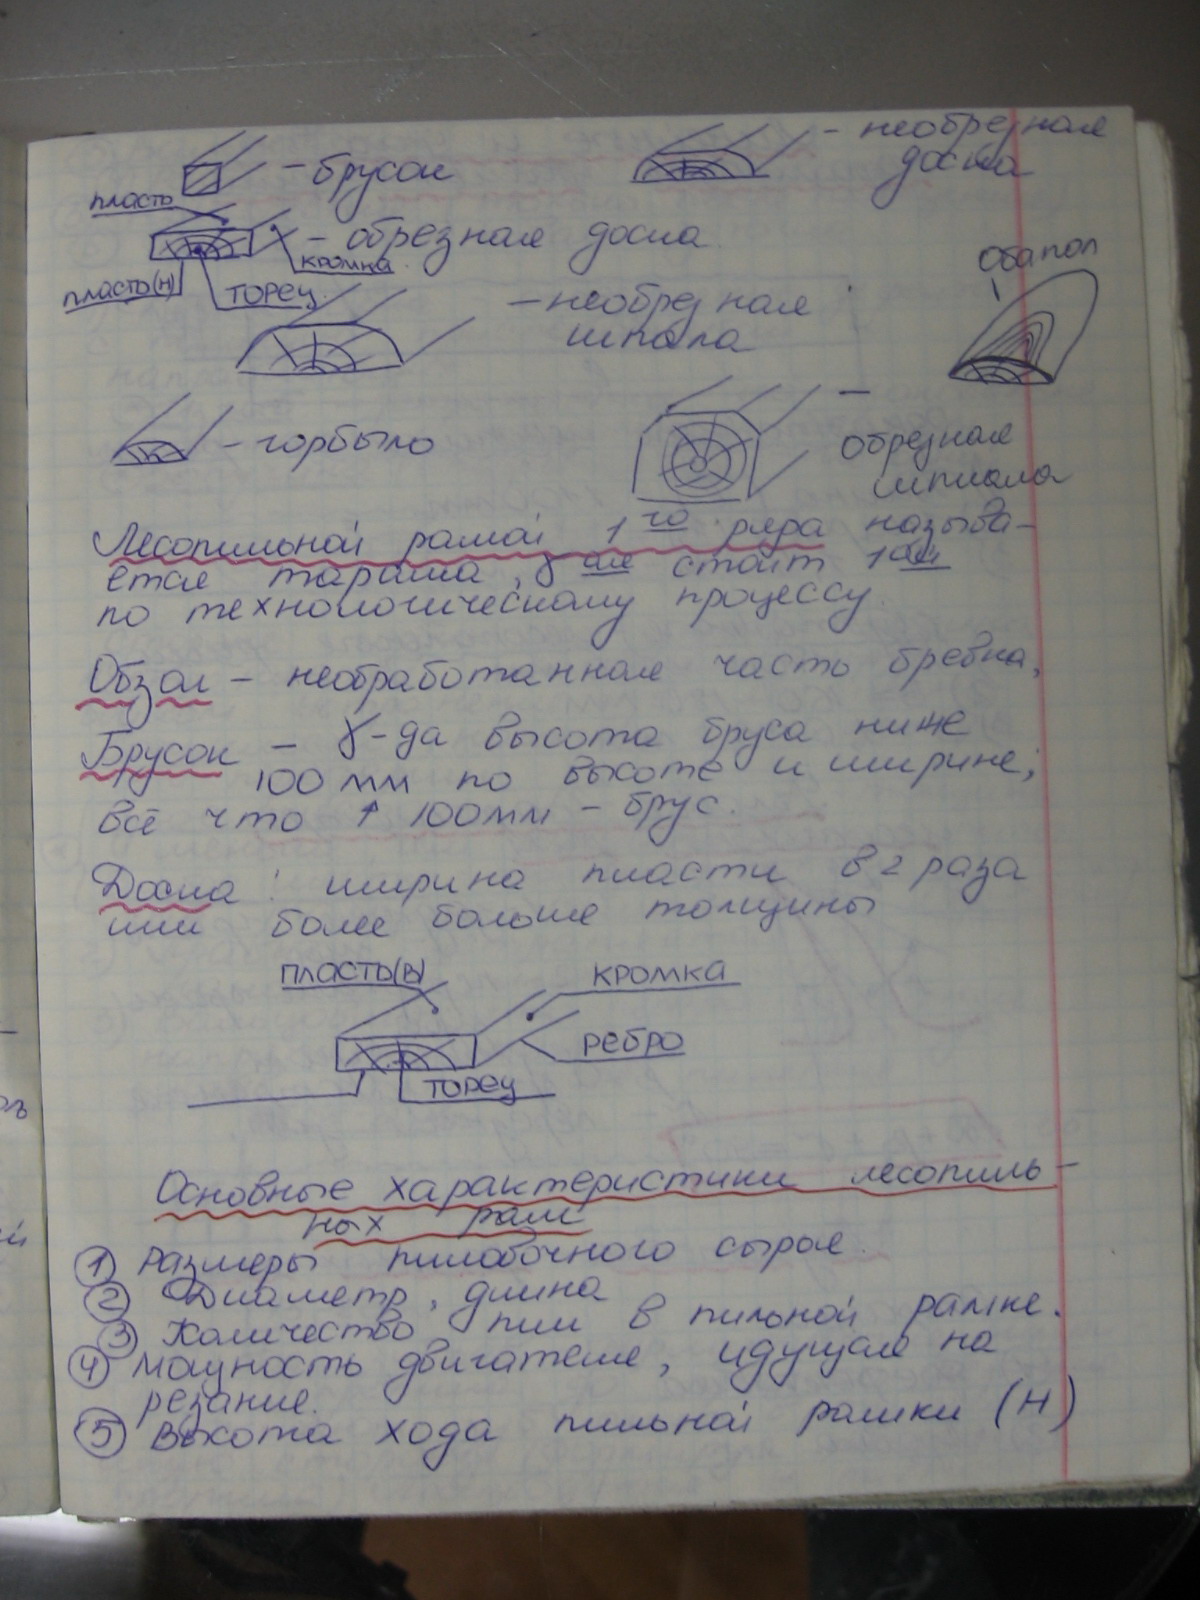 – брусок
– необрезная
доска
пласть
– обрезная доска
кромка
пласть(н)
торец
обапол
– необрезная
шпала
– горбыль
–
обрезная
шпала
Лесопильной рамой 1го ряда называ-
ется , стоит 1ой
по технологическому процессу.
Обзол – необработанная часть бревна,
Брусок – γ-да высота бруса ниже
100 мм по высоте и ширине,
всё что ↑ 100мм – брус.
Доска : ширина пласти в 2 раза
или более больше толщины
пласть(в)
кромка
ребро
торец
Основные характеристики лесопиль-
ных рам
① Размеры пиловочного сырья.
② Диаметр, длина
③ Количество пил в пильной рамке.
④ мощность двигателя, идущая на
резание.
⑤ Высота хода пильной рамки (Н)